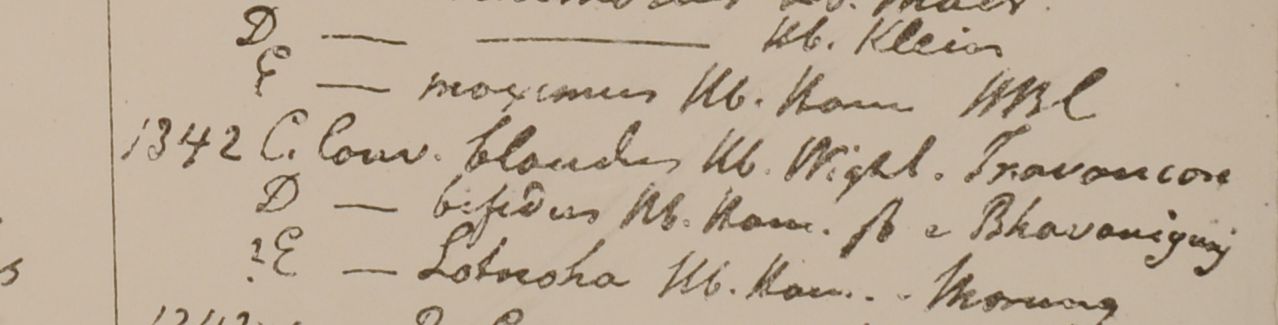 D — ——— Hb. Klein
E — maximus Hb. Ham HBC
1342 C. Conv. blandus Hb. Wight. Travancore
D — bifidus Hb. Ham. β e Bhavanigunj
?E — Lataroha Hb. Ham. . Morung